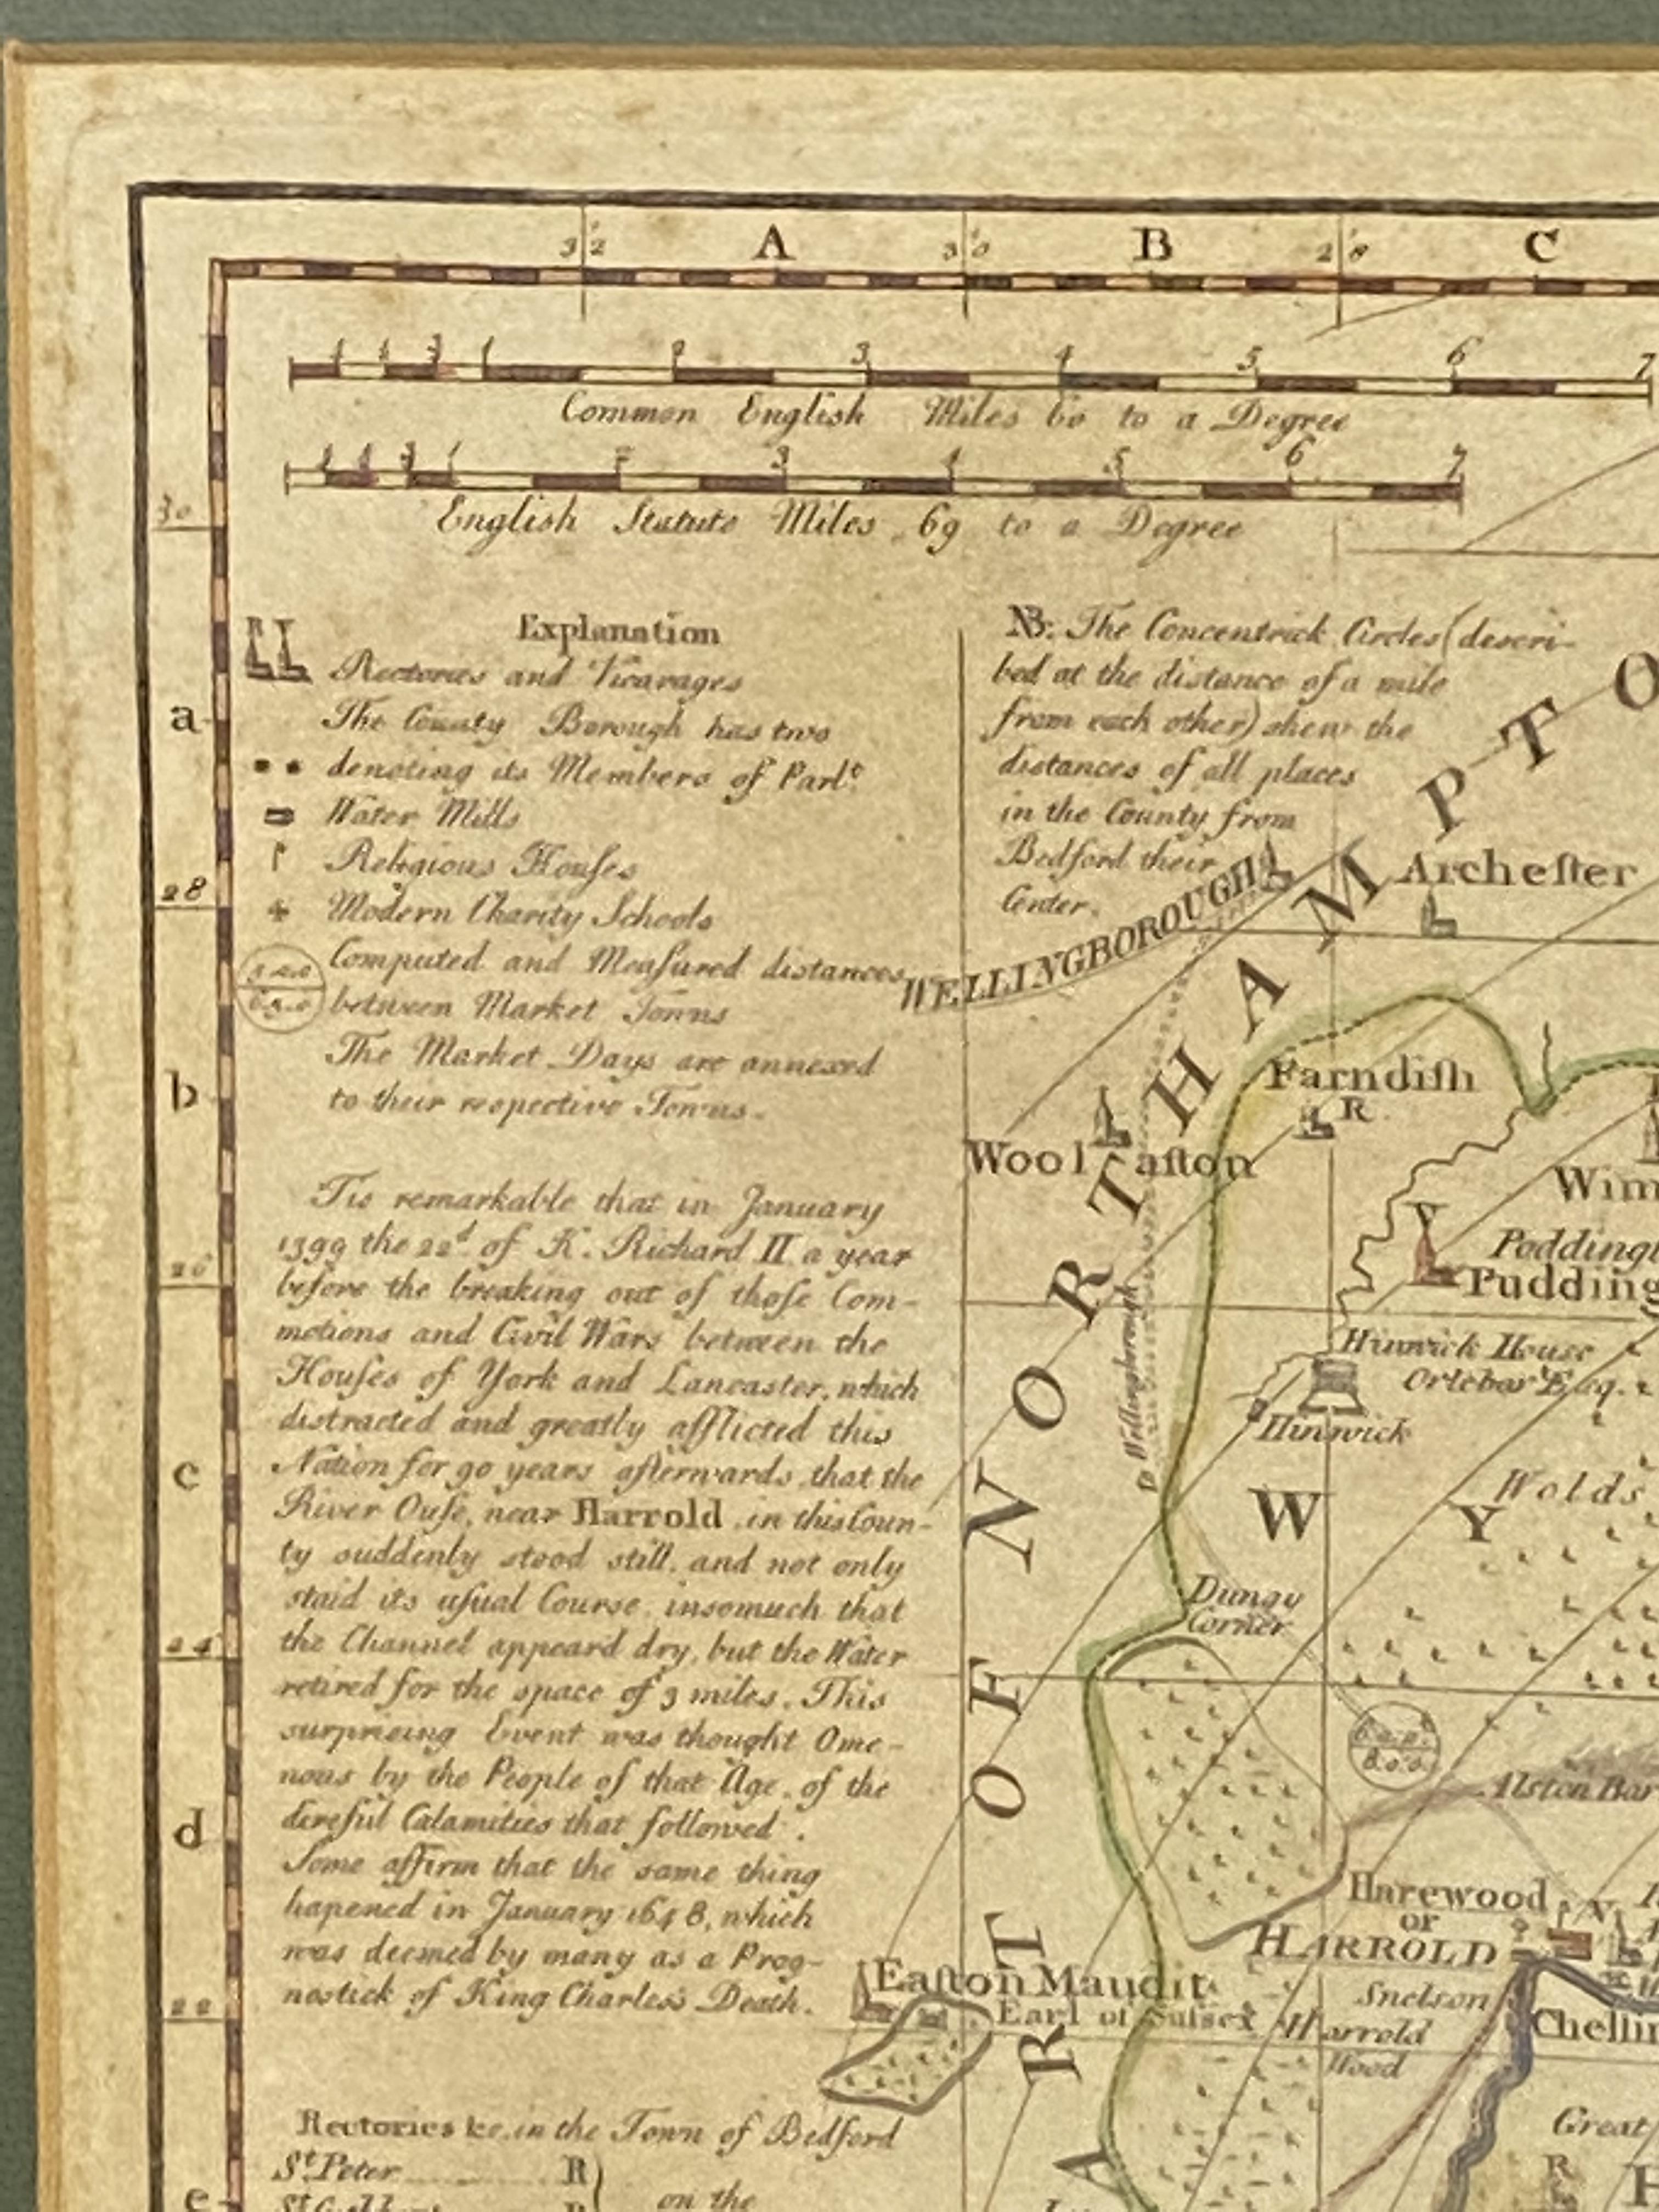 A B C
32 30 28
1 2 3 4 5 6 7
Common English Miles 60 to a Degree
1 2 3 4 5 6 7
English Statute Miles 69 to a Degree
30
Explanation
Rectories and Vicarages
The County Borough has two
denoting its Members of Parl.t
Water Mills
Religious Houſes
Modern Charity Schools
Computed and Meaſured distances
between Market Towns
The Market Days are annexed
to their respective Towns.
a
28
b
26
c
24
d
22
e
'Tis remarkable that in January
1399 the 22d. of K. Richard II a year
before the breaking out of thoſe Com-
motions and Civil Wars between the
Houſes of York and Lancaster, which
distracted and greatly afflicted this
Nation for 90 years afterwards, that the
River Ouſe, near Harrold, in this Coun-
ty suddenly stood still, and not only
staid its uſual Course, insomuch that
the Channel appeard dry, but the Water
retired for the space of 3 miles. This
surprising Event was thought Ome-
nous by the People of that Age, of the
direfull Calamities that followed.
Some affirm that the same thing
hapened in January 1648, which
was deemed by many as a Prog-
nostick of King Charles's Death.
Rectories &c. in the Town of Bedford
St. Peter R
on the
NB. The Concentrick Circles (descri-
bed at the distance of a mile
from each other) shew the
distances of all places
in the County from
Bedford their
Center.
WELLINGBOROUGH
PART OF NORTHAMPTO
Archeſter
Farndiſh
R
Woollaſton
Wim
Poddingt
Pudding
To Wellingborough
Hinwick House
Orlebar Esq.
Hinwick
W Y
Wolds
Dungy
Corner
8.0.0
Alston Bar
Harewood
or
HARROLD
V
Snelson
Harrold
Wood
Chellin
Eaſton Maudit
Earl of Suſsex
Great
R
H